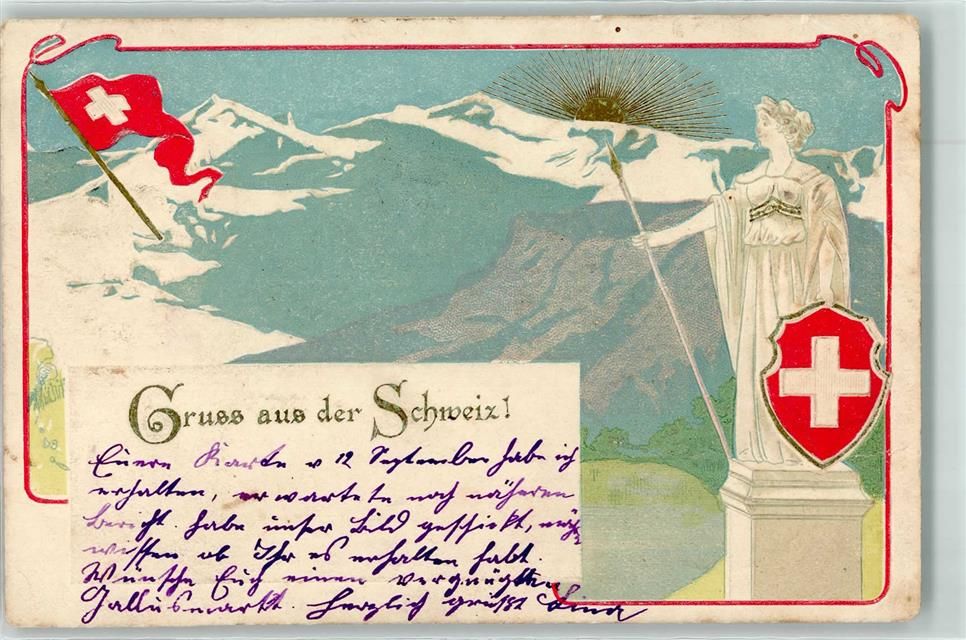 Gruss aus der Schweiz!
Euere Karte v 12 September habe ich
erhalten, erwartete noch näheren
Bericht. habe unser Bild geschickt, möcht
wissen ob Ihr es erhalten habt.
Wünsche Euch einen vergnügten
Gallusmarkt. Herzlich grüsst Lina